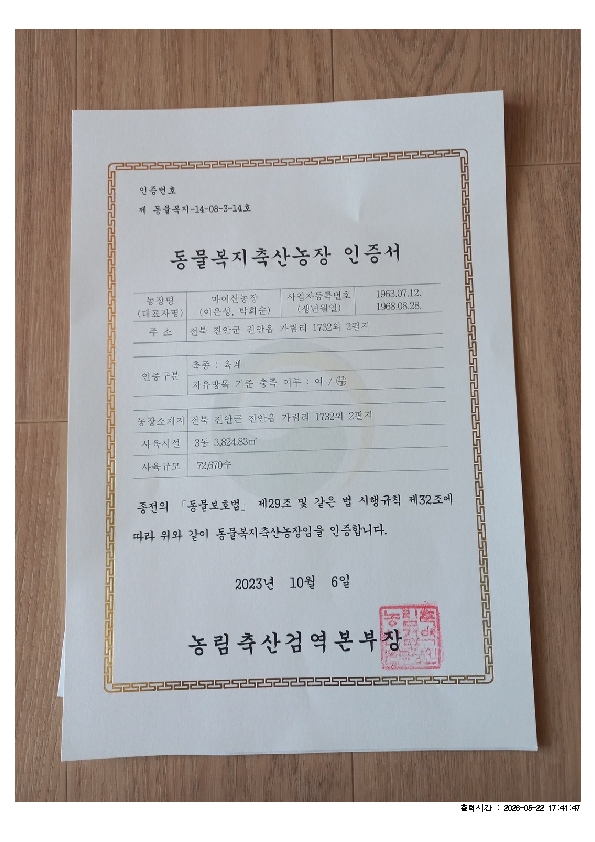 인증번호
제 동물복지-14-08-3-14호
동물복지축산농장 인증서
농장명
(대표자명)
마이산농장
(이은성, 박희순)
사업자등록번호
(생년월일)
1963.07.12.
1968.08.28.
주 소
전북 진안군 진안읍 가림리 1732외 2필지
인증구분
축종 : 육계
자유방목 기준 충족 여부 : 여 / 부
농장소재지
전북 진안군 진안읍 가림리 1732외 2필지
사육시설
3동 3,824.83㎡
사육규모
72,670수
종전의 「동물보호법」 제29조 및 같은 법 시행규칙 제32조에
따라 위와 같이 동물복지축산농장임을 인증합니다.
2023년 10월 6일
농림축산검역본부장
출력시간 : 2026-05-22 17:41:47